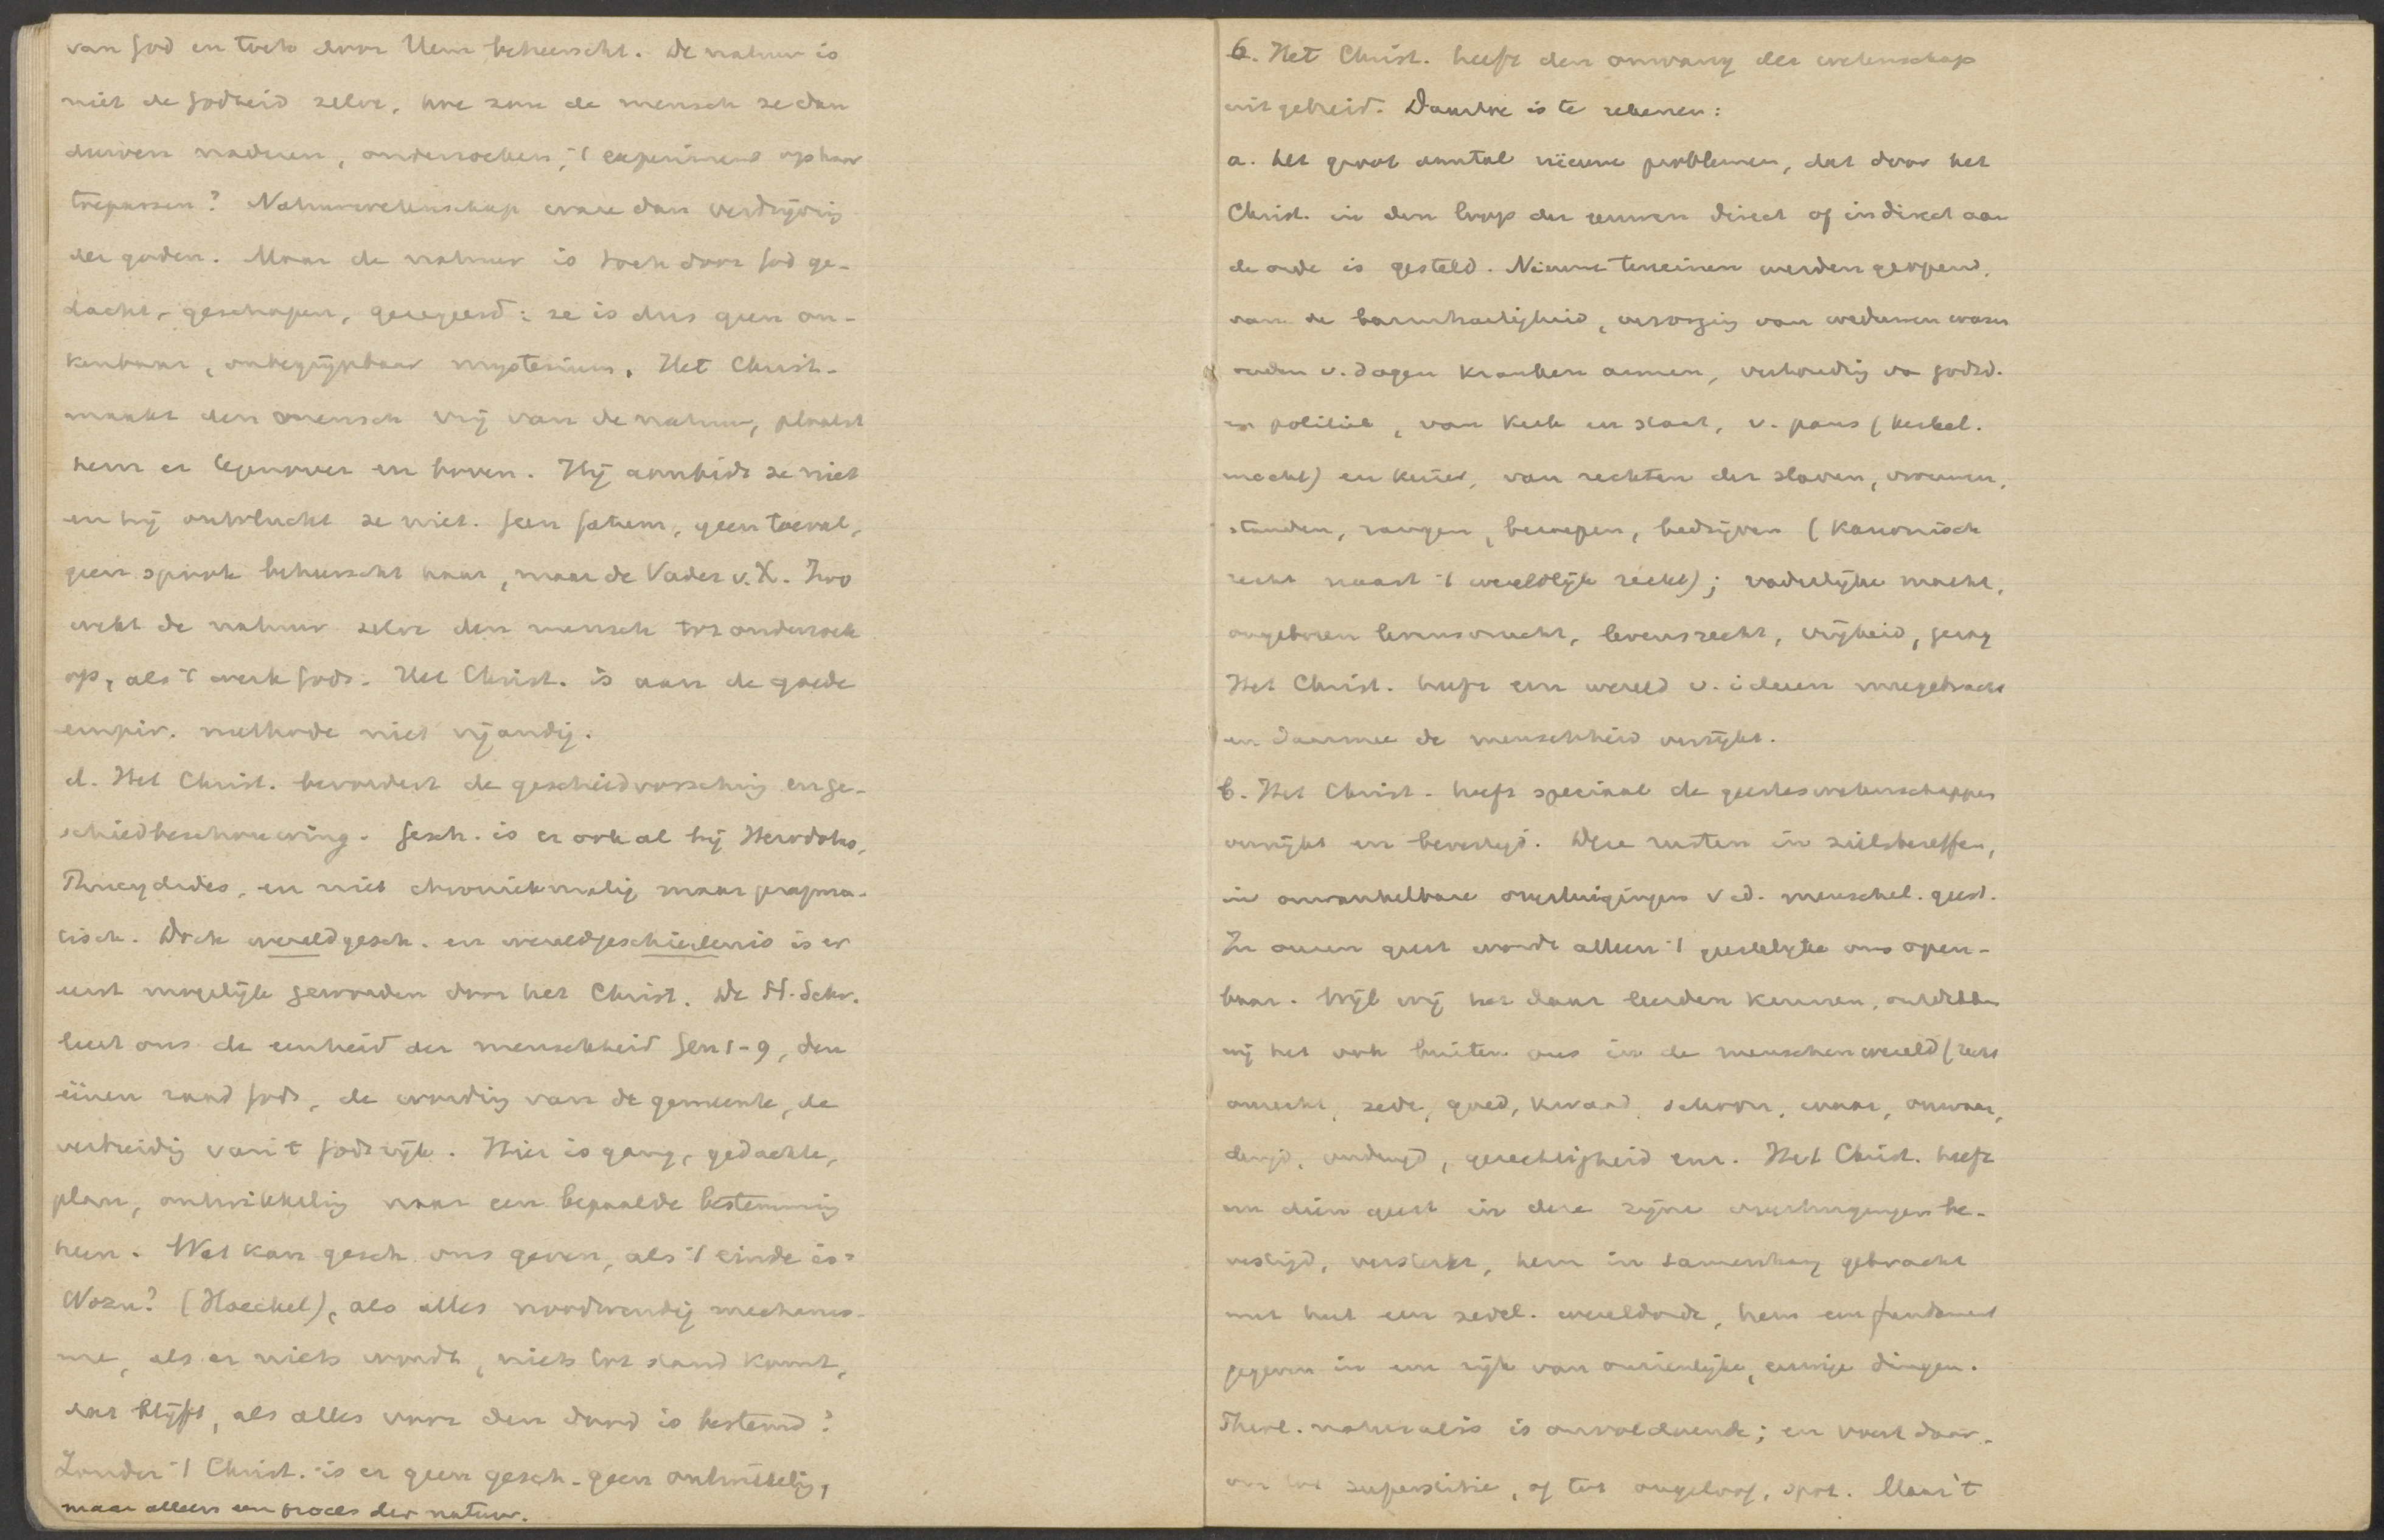 van God en toch door Hem beheerscht. De natuur is
niet de Godheid zelve, hoe zou de mensch ze dan
durven naderen, onderzoeken, 't experiment op haar
toepassen? Natuurwetenschap ware dan verdrijving
der goden. Maar de natuur is toch door God ge-
dacht, geschapen, geregeerd: ze is dus geen on-
kenbaar, onbegrijpbaar mysterium. Het Christ.
maakt den mensch vrij van de natuur, plaatst
hem er tegenover en boven. Hij aanbidt ze niet
en hij ontvlucht ze niet. Geen fatum, geen toeval,
geen spook beheerscht haar, maar de Vader v. X. Zoo
wekt de natuur zelve den mensch tot onderzoek
op, als 't werk Gods. Het Christ. is aan de goede
empir. methode niet vijandig.
d. Het Christ. bevordert de geschiedvorsching en ge-
schiedbeschouwing. Gesch. is er ook al bij Herodotus,
Thucydides, en niet chroniekmatig maar pragma-
tisch. Doch wereldgesch. en wereldgeschiedenis is er
eerst mogelijk geworden door het Christ. De H. Schr.
leert ons de eenheid der menschheid Gen 1-9, den
éénen raad Gods, de wording van de gemeente, de
verbreiding van 't Godsrijk. Hier is gang, gedachte,
plan, ontwikkeling naar een bepaalde bestemming
heen. Wat kan gesch. ons geven, als 't einde is:
Wozu? (Haeckel), als alles noodwendig mechanis-
me, als er niets wordt, niets tot stand komt,
dat blijft, als alles voor den dood is bestemd?
Zonder 't Christ. is er geen gesch. geen ontwikkeling,
maar alleen een proces der natuur.
6. Het Christ. heeft den omvang der wetenschap
uitgebreid. Daartoe is te rekenen:
a. het groot aantal nieuwe problemen, dat door het
Christ. in den loop der eeuwen direct of indirect aan
de orde is gesteld. Nieuwe terreinen werden geopend,
van de barmhartigheid, verzorging van weduwen wezen
ouden v. dagen kranken armen, verhouding van godsd.
en politiek, van kerk en staat, v. paus (kerkel.
macht) en keizer, van rechten der slaven, vrouwen,
standen, rangen, beroepen, bedrijven (Kanonisch
recht naast 't wereldlijk recht); vaderlijke macht,
ongeboren levensvrucht, levensrecht, vrijheid, gezag
Het Christ. heeft een wereld v. ideeen meegebracht
en daarmee de menschheid verrijkt.
b. Het Christ. heeft speciaal de geesteswetenschappen
verrijkt en bevestigd. Deze rusten in zielsbeseffen,
in onwankelbare overtuigingen v. d. menschel. geest.
In onzen geest wordt alleen 't geestelijke ons open-
baar. Wijl wij het daar leerden kennen, ontdekken
wij het ook buiten ons in de menschenwereld (recht
onrecht, zede, goed, kwaad, schoon, waar, onwaar,
deugd, ondeugd, gerechtigheid enz. Het Christ. heeft
nu dien geest in deze zijne overtuigingen be-
vestigd, versterkt, hem in samenhang gebracht
met heel een zedel. wereldorde, hem een fundament
gegeven in een rijk van onzienlijke, eeuwige dingen.
Theol. naturalis is onvoldoende; en voert daar-
om tot superstitie, of tot ongeloof, spot. Maar 't